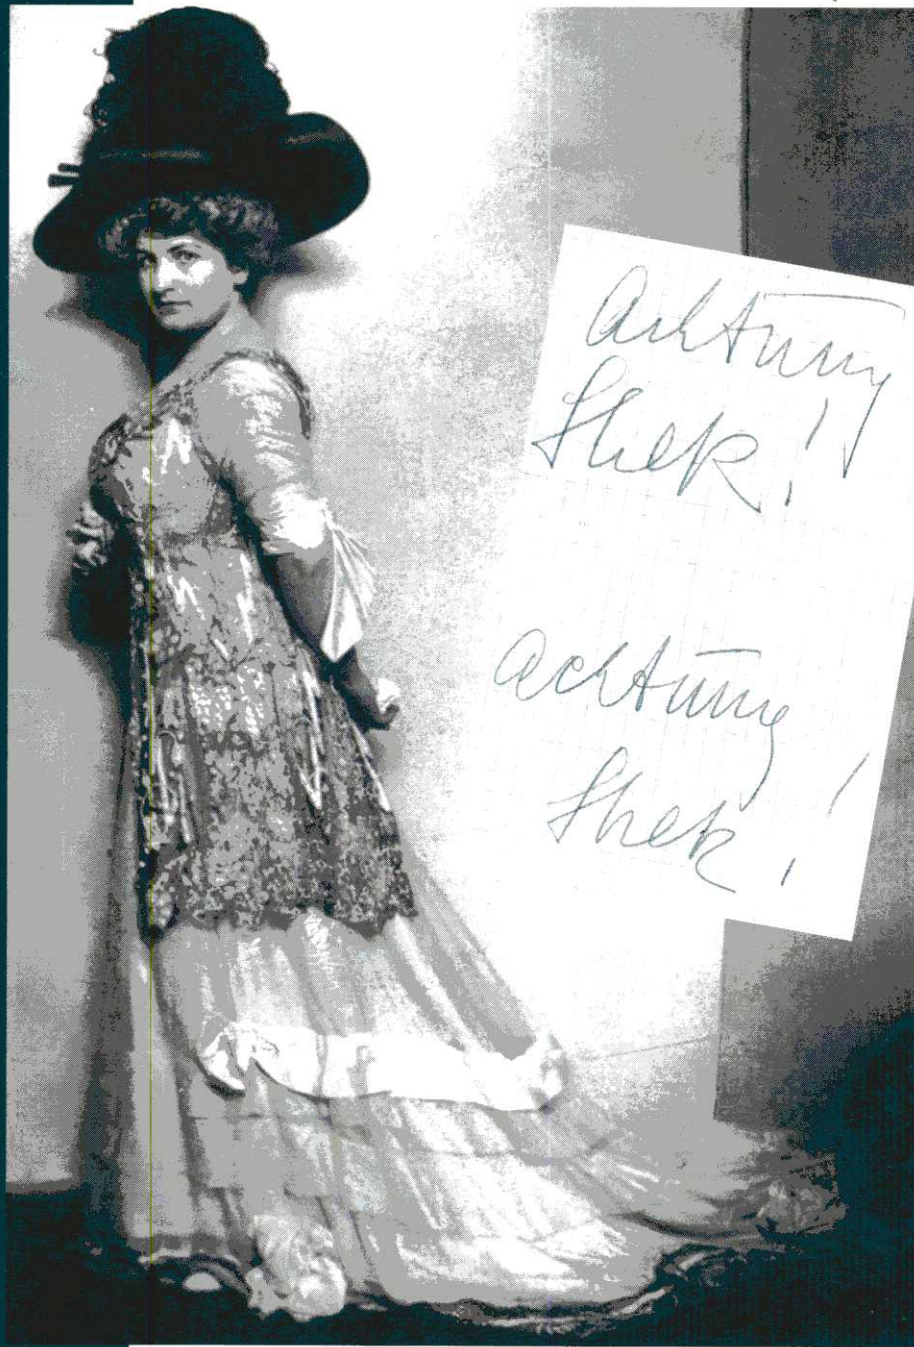 Achtung
Shek!
Achtung
Shek!